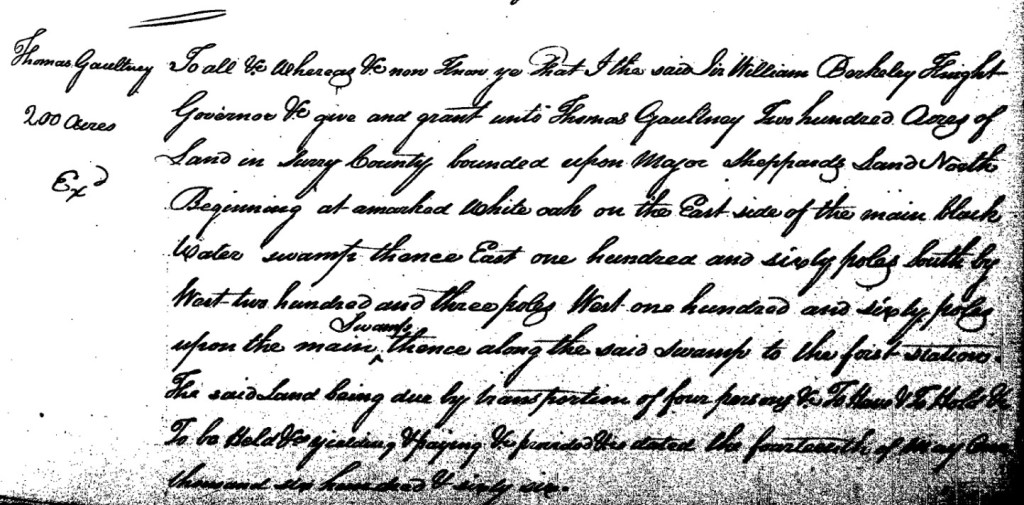 Thomas Gaultney
200 Acres
Exd
To all &c Whereas &c now Know ye That I the said Sir William Berkeley Knight
Governor &c give and grant unto Thomas Gaultney Two hundred Acres of
Land in Surry County bounded upon Major Sheppards Land North
Beginning at a marked White oak on the East side of the main black
Water swamp thence East one hundred and sixly poles South by
West two hundred and three poles West one hundred and sixty poles
upon the main Swamp thence along the said swamp to the first station.
The said Land being due by transportion of four persons &c To Have & To Hold &c
To be Held &c yielding & paying &c provided &c dated the fourteenth of May One
thousand six hundred & sixty six.